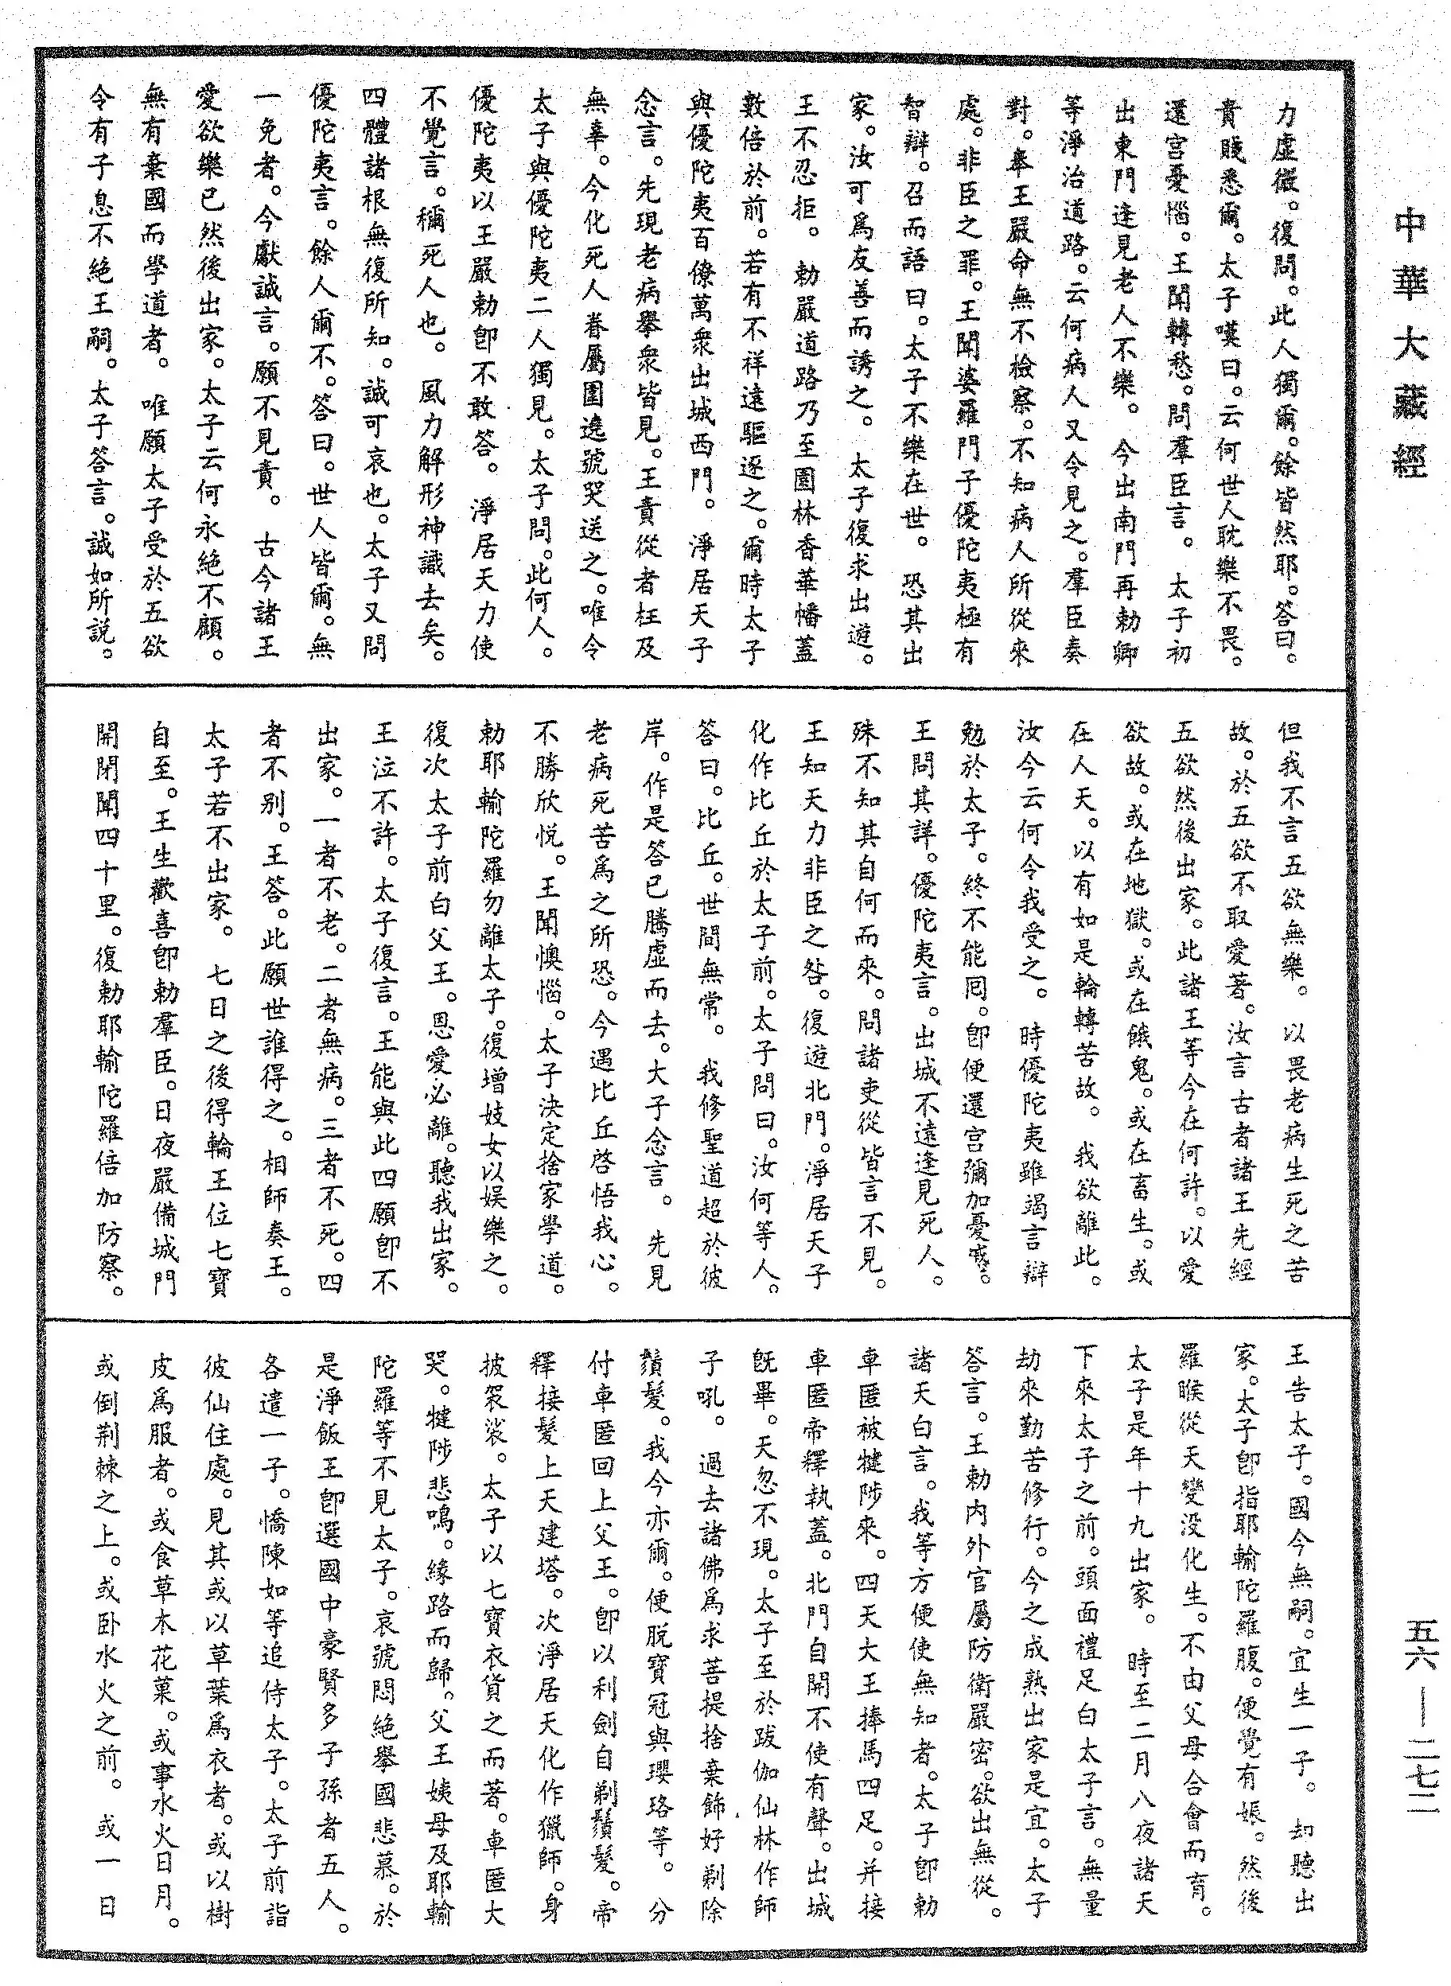 中華大藏經
力虛微。復問。此人獨爾。餘皆然耶。答曰。
貴賤悉爾。太子嘆曰。云何世人耽樂不畏。
還宮憂惱。王聞轉愁。問羣臣言。太子初
出東門逢見老人不樂。今出南門再勅卿
等淨治道路。云何病人又令見之。羣臣奏
對。奉王嚴命無不檢察。不知病人所從來
處。非臣之罪。王聞婆羅門子優陀夷極有
智辯。召而語曰。太子不樂在世。恐其出
家。汝可爲友善而誘之。太子復求出遊。
王不忍拒。勅嚴道路乃至園林香華幡蓋
數倍於前。若有不祥遠驅逐之。爾時太子
與優陀夷百僚萬衆出城西門。淨居天子
念言。先現老病舉衆皆見。王責從者枉及
無辜。今化死人眷屬圍遶號哭送之。唯令
太子與優陀夷二人獨見。太子問。此何人。
優陀夷以王嚴勅卽不敢答。淨居天力使
不覺言。稱死人也。風力解形神識去矣。
四體諸根無復所知。誠可哀也。太子又問
優陀夷言。餘人爾不。答曰。世人皆爾。無
一免者。今獻誠言。願不見責。古今諸王
愛欲樂已然後出家。太子云何永絕不顧。
無有棄國而學道者。唯願太子受於五欲
令有子息不絕王嗣。太子答言。誠如所說。
但我不言五欲無樂。以畏老病生死之苦
故。於五欲不取愛著。汝言古者諸王先經
五欲然後出家。此諸王等今在何許。以愛
欲故。或在地獄。或在餓鬼。或在畜生。或
在人天。以有如是輪轉苦故。我欲離此。
汝今云何令我受之。時優陀夷雖竭言辯
勉於太子。終不能囘。卽便還宮彌加憂慼。
王問其詳。優陀夷言。出城不遠逢見死人。
殊不知其自何而來。問諸吏從皆言不見。
王知天力非臣之咎。復遊北門。淨居天子
化作比丘於太子前。太子問曰。汝何等人。
答曰。比丘。世間無常。我修聖道超於彼
岸。作是答已騰虛而去。大子念言。先見
老病死苦爲之所恐。今遇比丘啓悟我心。
不勝欣悦。王聞懊惱。太子決定捨家學道。
勅耶輸陀羅勿離太子。復增妓女以娛樂之。
復次太子前白父王。恩愛必離。聽我出家。
王泣不許。太子復言。王能與此四願卽不
出家。一者不老。二者無病。三者不死。四
者不别。王答。此願世誰得之。相師奏王。
太子若不出家。七日之後得輪王位七寶
自至。王生歡喜卽勅羣臣。日夜嚴備城門
開閉聞四十里。復勅耶輸陀羅倍加防察。
王告太子。國今無嗣。宜生一子。却聽出
家。太子卽指耶輸陀羅腹。便覺有娠。然後
羅睺從天變没化生。不由父母合會而育。
太子是年十九出家。時至二月八夜諸天
下來太子之前。頭面禮足白太子言。無量
劫來勤苦修行。今之成熟出家是宜。太子
答言。王勅内外官屬防衛嚴密。欲出無從。
諸天白言。我等方便使無知者。太子卽勅
車匿被犍陟來。四天大王捧馬四足。并接
車匿帝釋執蓋。北門自開不使有聲。出城
旣畢。天忽不現。太子至於跋伽仙林作師
子吼。過去諸佛爲求菩提捨棄飾好剃除
鬚髮。我今亦爾。便脱寶冠與瓔珞等。分
付車匿回上父王。卽以利劍自剃鬚髮。帝
釋接髮上天建塔。次淨居天化作獵師。身
披袈裟。太子以七寶衣貨之而著。車匿大
哭。犍陟悲鳴。緣路而歸。父王姨母及耶輸
陀羅等不見太子。哀號悶絕舉國悲慕。於
是淨飯王卽選國中豪賢多子孫者五人。
各遣一子。憍陳如等追侍太子。太子前詣
彼仙住處。見其或以草葉爲衣者。或以樹
皮爲服者。或食草木花菓。或事水火日月。
或倒荆棘之上。或卧水火之前。或一日
五六——二七二